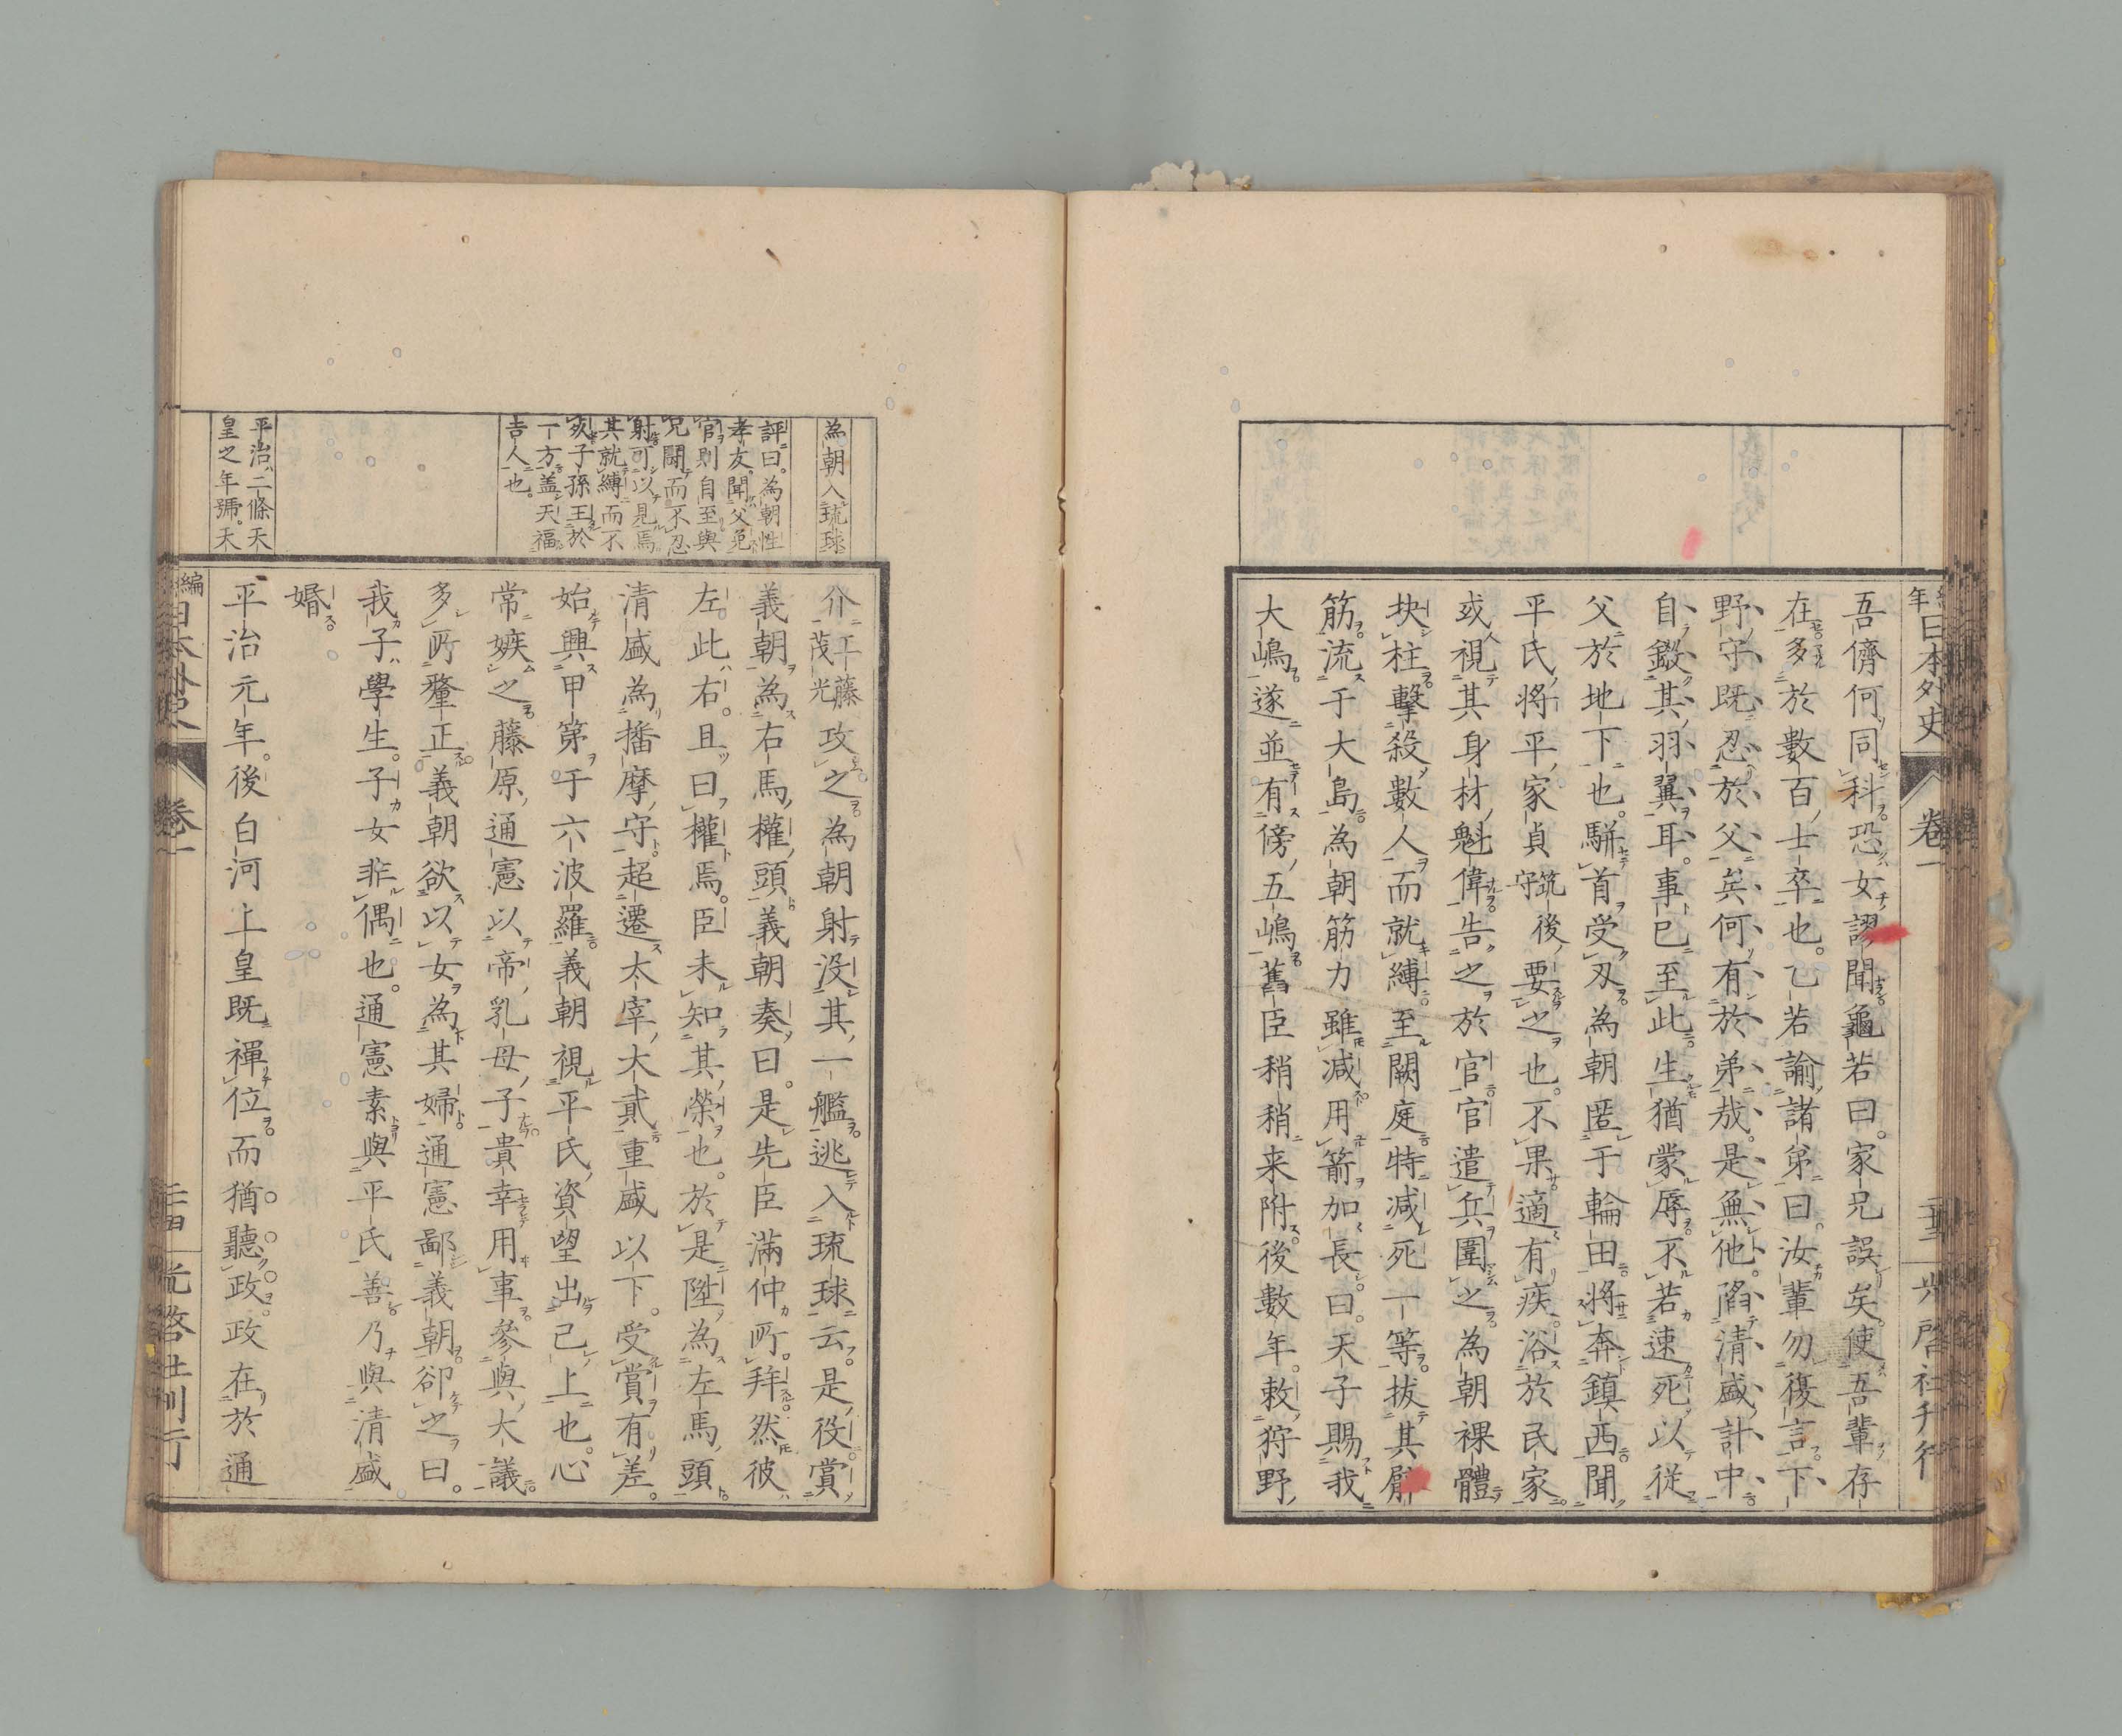 年日本外史
卷一
啓社刋行
吾儕何同科恐女謬聞龜若曰家兄誤矣使吾輩存
在多於數百士卒也乙若諭諸弟曰汝輩勿復言下
野守既忍於父矣何有於弟哉是無他陷清盛計中
自鏺其羽翼耳事已至此生猶蒙辱不若速死以従
父於地下也駢首受刃為朝匿于輪田将奔鎮西聞
平氏将平家貞筑後守要之也不果適有疾浴於民家
或視其身材魁偉告之於官官遣兵圍之為朝裸體
抉柱擊殺數人而就縛至闕庭特減死一等拔其臂
筋流于大島為朝筋力雖減用箭加長曰天子賜我
大嶋遂並有傍五嶋舊臣稍稍来附後數年敕狩野
為朝入琉球
評曰為朝性
孝友聞父免
官則自至與
兄鬪而不忍
射可以見焉
其就縛而不
亥子孫王於
一方盖天福
吉人也
平治二條天
皇之年號天
介工藤茂光攻之為朝射没其一艦逃入琉球云是役賞
義朝為右馬權頭義朝奏曰是先臣滿仲所拜然彼
左此右且曰權焉臣未知其榮也於是陞為左馬頭
清盛為播摩守超遷太宰大貳重盛以下受賞有差
始興甲第于六波羅義朝視平氏資望出己上也心
常嫉之藤原通憲以帝乳母子貴幸用事參與大議
多所釐正義朝欲以女為其婦通憲鄙義朝卻之曰
我子學生子女非偶也通憲素與平氏善乃與清盛
婚
平治元年後白河上皇既禪位而猶聽政政在於通
編日本外史
卷一